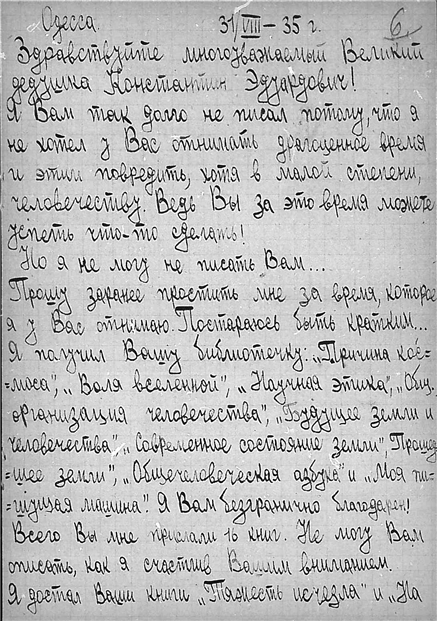 Одесса. 31/VIII – 35 г. 6.
Здравствуйте многоуважаемый Великий
дедушка Константин Эдуардович!
Я Вам так долго не писал потому, что я
не хотел у Вас отнимать драгоценное время
и этим повредить, хотя в малой степени,
человечеству. Ведь Вы за это время можете
успеть что-то сделать!
Но я не могу не писать Вам...
Прошу заранее простить мне за время, которое
я у Вас отнимаю. Постараюсь быть кратким...
Я получил Вашу библиотечку: „Причина кос=
=моса", „Воля вселенной", „Научная этика", „Общ.
организация человечества", „Будущее земли и
человечества", „Современное состояние земли", „Прошед=
=шее земли", „Общечеловеческая азбука" и „Моя пи=
=шущая машина". Я Вам безгранично благодарен!
Всего Вы мне прислали 16 книг. Не могу Вам
описать, как я счастлив Вашим вниманием.
Я достал Ваши книги „Тяжесть исчезла" и „На